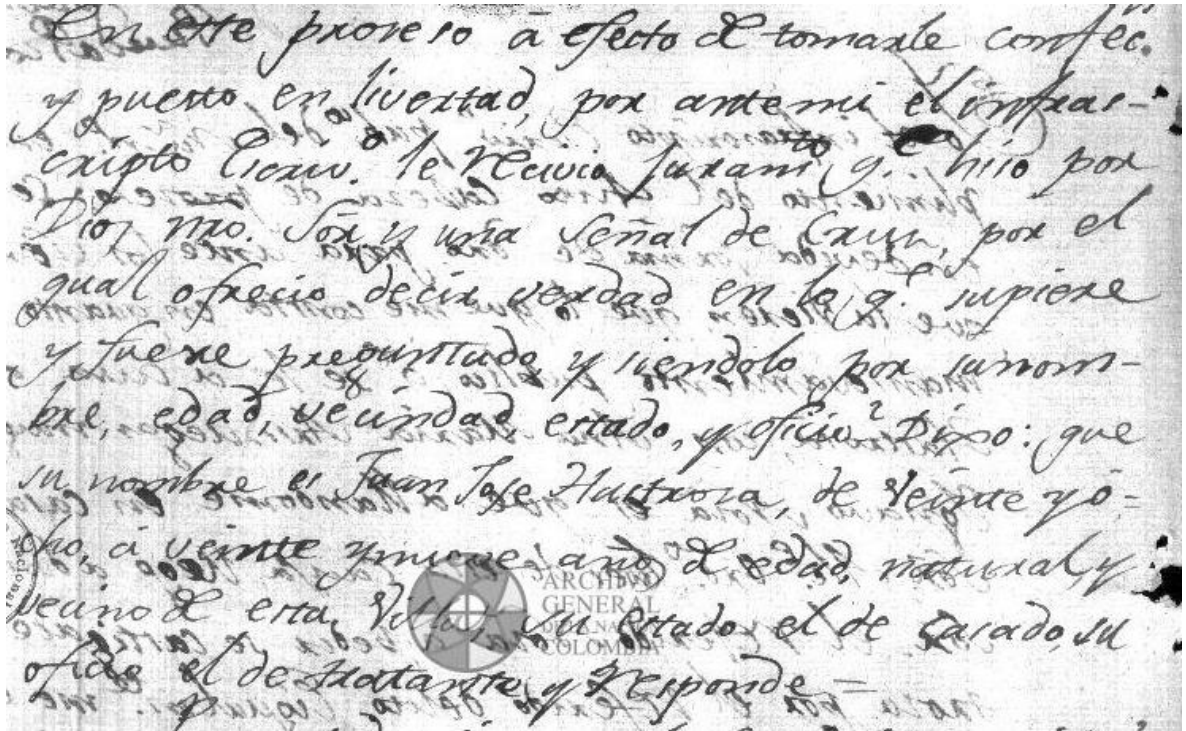 En este proseso â efecto de tomarle confec.
y puesto, en livertad, por ante mi el infras-
cripto Escriv.º le Recivio Juram.to q.e hiso por
Dios nro. Sõr y una Señal de Cruz, por el
qual ofrecio decir verdad en lo q.e supiere
y fuere preguntado, y siendolo por su nom-
bre, edad, vecindad, estado, y oficio? Dixo: que
su nombre es Juan Jose Hustrosa, de Veinte y ô-
cho, â veinte y nueve año de edad, natural y
vecino de esta Villa, su estado el de casado, su
oficio el de tratante, y Responde =
ARCHIVO
GENERAL
DE LA NACIÓN
COLOMBIA